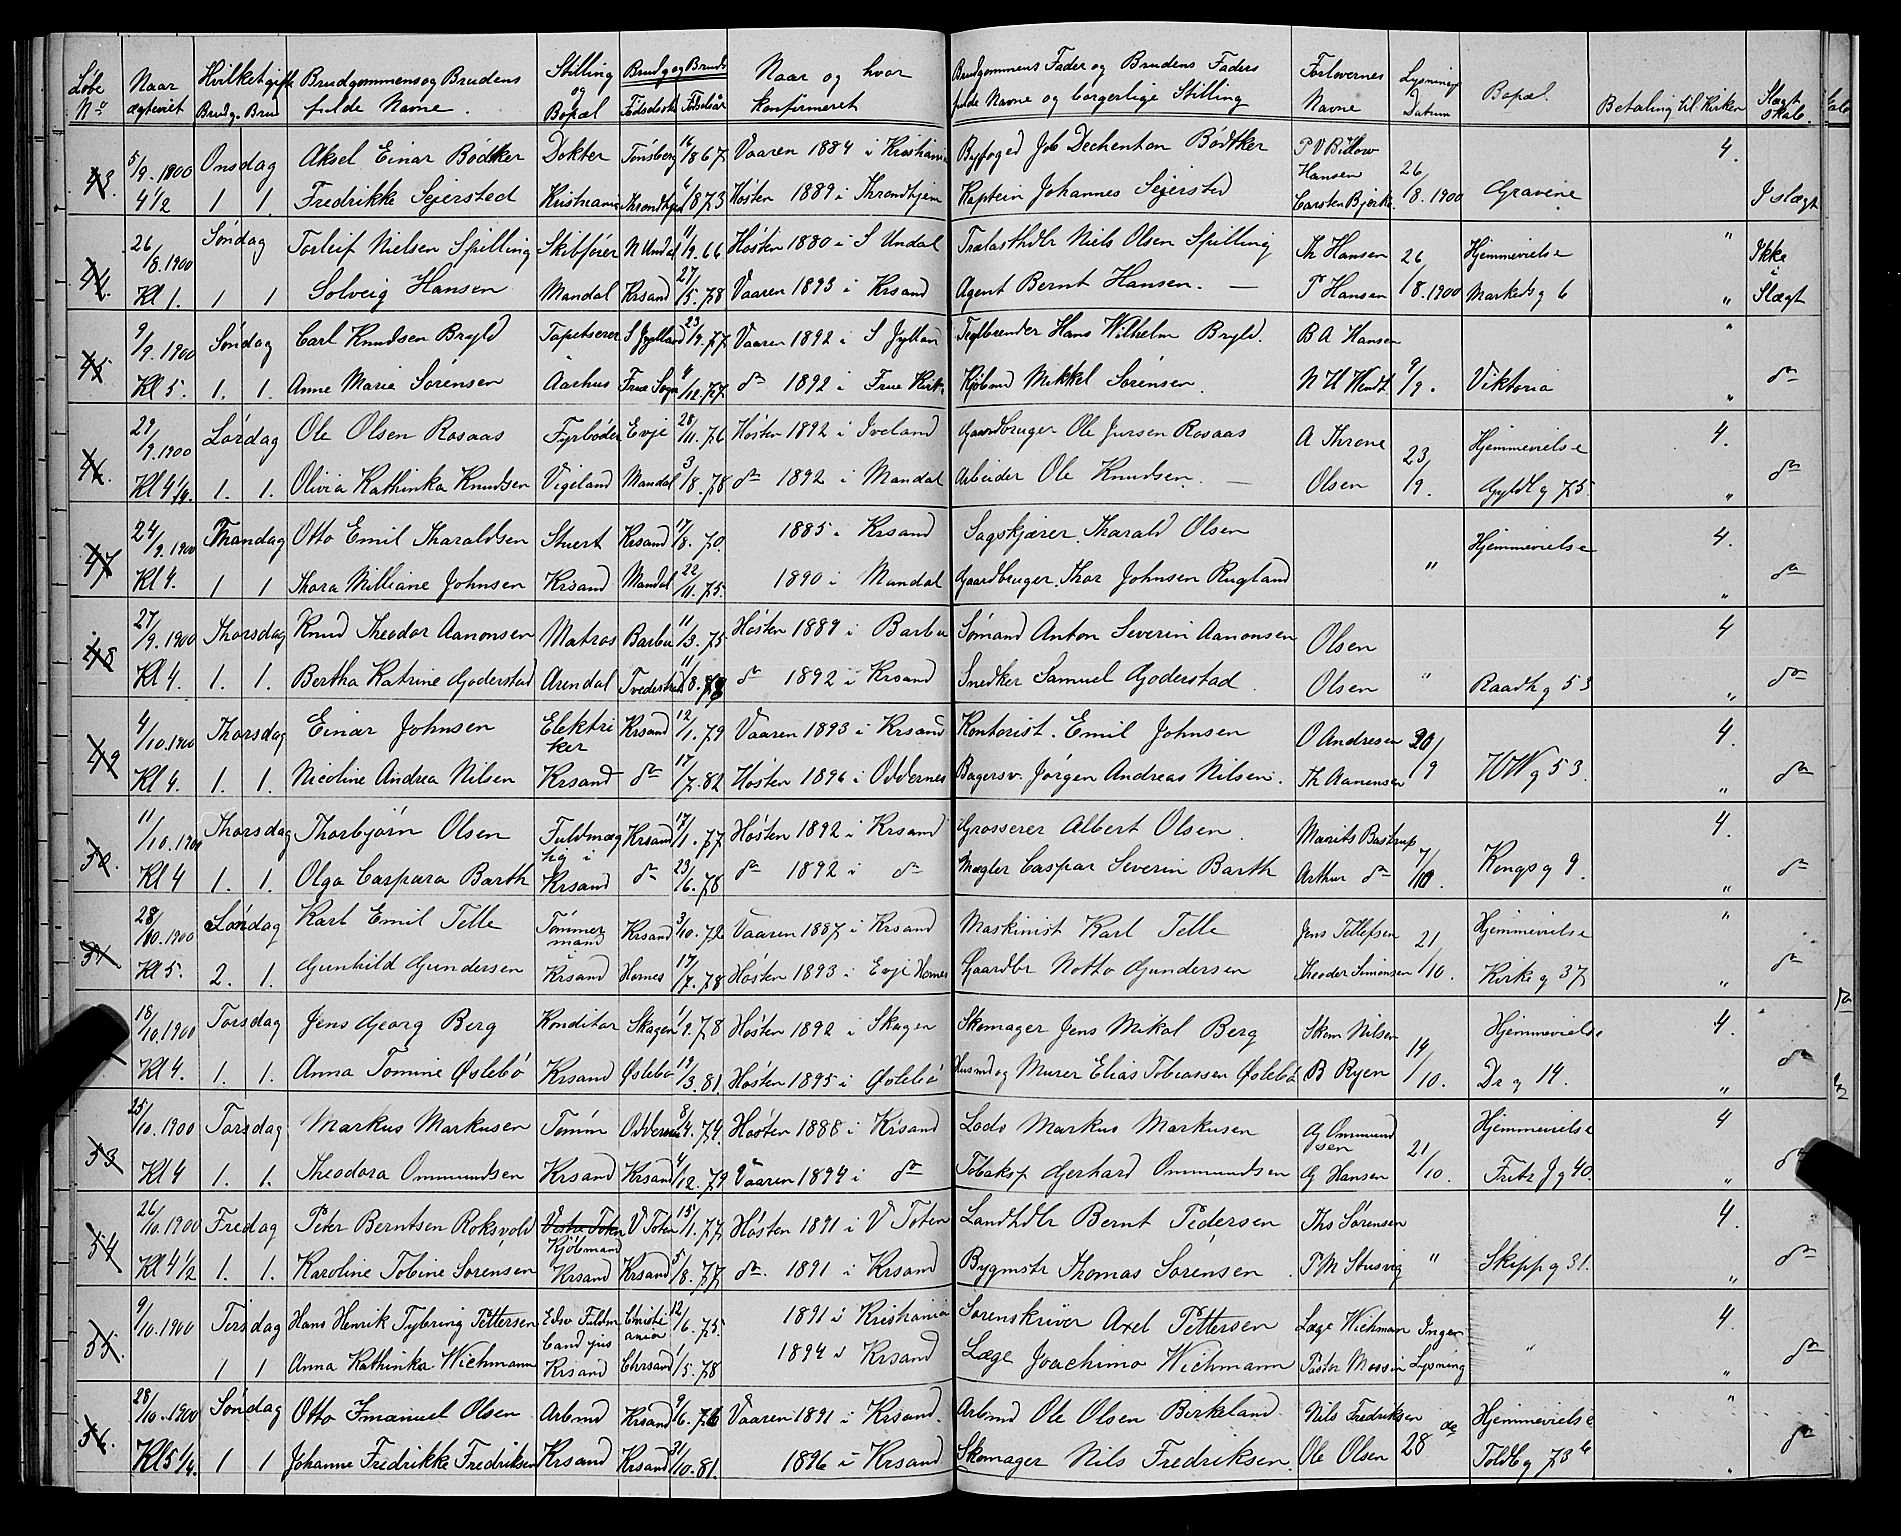 Løbe Nº | Naar ægteviet | Hvilket gifte Brudg. Brud | Brudgommens og Brudens fulde Navne. | Stilling og Bopæl | Brudg og Bruds Fødested Fødselsår | Naar og hvor konfirmeret | Brudgommens Fader og Brudens Faders fulde Navne og borgerlige Stilling | Forlovernes Navne | Lysnings Datum | Bopæl. | Betaling til Kirken | Slægtskab.
43. | 5/9. 1900 | Onsdag | Aksel Einar Bødtker | Dokter | Tønsberg | 16/ 1867 | Vaaren 1884 i Kristiania | Byfoged Job Dechenton Bødtker | P V Bülow Hansen | 26 | | 4.
4 1/2 | 1 | 1. | Fredrikke Sejersted | Kristiania | Throndhjem | 6/ 1873 | Høsten 1889 i Throndhjem | Kaptein Johannes Sejersted | Carsten Bjerke | /8. 1900 | Gravene | I slægt
44. | 26/8. 1900 | Søndag | Torleif Nielsen Spilling | Skibfører | N Undal | 11/9. 66 | Høsten 1880 i S Undal | Trælasthdlr Niels Olsen Spilling | Th Hansen | 26 | Hjemmevielse | " | Ikke
Kl 1. | 1 | 1 | Solveig Hansen | Mandal | Krsand | 27/5. 78 | Vaaren 1893 i Krsand | Agent Bernt Hansen. — | P Hansen | /8. 1900 | Markeds g 6 | " | i Slægt
45 | 9/9. 1900 | Søndag | Carl Knudsen Bryld | Tapetserer | S Jylland | 23/9. 77 | Vaaren 1892 i S Jylland | Teglbrender Hans Wilhelm Bryld. | B A Hansen | | | "
Kl 5. | 1. | 1. | Anne Marie Sørensen | Aarhus | Frue Sogn | 4/12. 77 | do 1892 i Frue Kirk. | Kjøbmd Mikkel Sørensen. | N H Wendt | 9/9. | Viktoria | " | do
46. | 29/9. 1900 | Lørdag | Ole Olsen Rosaas | Fyrbøder | Evje | 28/11. 76 | Høsten 1892 i Iveland | Gaardbruger Ole Jursen Rosaas | A Throne | 23 | Hjemmevielse | 4.
Kl 4 1/4. | 1. | 1. | Olivia Kathinka Knudsen | Vigeland | Mandal | 3/8. 78 | do 1892 i Mandal | Arbeider Ole Knudsen. — | Olsen | /9. | Gyldl g 75. | " | do
47 | 24/9. 1900 | Mandag | Otto Emil Tharaldsen | Stuert | Krsand | 17/8. 70. | 1885 i Krsand | Sagskjærer Tharald Olsen | | | Hjemmevielse | 4.
Kl 4. | 1 | 1 | Thora Milliane Johnsen | Krsand | Mandal | 22/11. 75. | 1890 i Mandal | Gaardbruger. Thor Johnsen Rugland | | " | | " | do
48 | 27/9. 1900 | Thorsdag | Knud Theodor Aanonsen | Matros | Barbu | 11/3. 75 | Høsten 1889 i Barbu | Sømand Anton Severin Aanonsen | Olsen | | | 4
Kl 4. | 1. | 1. | Bertha Katrine Goderstad | Arendal | Tvedestrand | 11/8. | do 1892 i Krsand | Snedker Samuel Goderstad | Olsen | " | Raadh g 53 | " | do
49 | 4/10. 1900 | Thorsdag | Einar Johnsen | Elektriker | Krsand | 12/1. 79 | Vaaren 1893 i Krsand | Kontorist. Emil Johnsen | O Andresen | 30/ | | 4.
Kl 4. | 1. | 1. | Nicoline Andrea Nilsen | Krsand | do | 17/7. 82 | Høsten 1896 i Oddernes | Bagersv. Jørgen Andreas Nilsen. | Th Aanensen | 9 | H W g 53. | " | do
50. | 11/10. 1900 | Thorsdag | Thorbjørn Olsen | Fuldmægtig i | Krsand | 17/1. 77 | Høsten 1892 i Krsand | Grosserer Albert Olsen. | Maurits Bastrup | 7/ | | 4.
Kl 4 | 1. | 1. | Olga Caspara Barth | Krsand | do | 23/6. 78 | do 1892 i do | Mægler Caspar Severin Barth | Arthur do | 10. | Kongs g 9. | " | do
51 | 28/10. 1900 | Søndag | Karl Emil Telle | Tømmermand | Krsand | 3/10. 72 | Vaaren 1887 i Krsand | Maskinist Karl Telle | Jens Tellefsen | 21 | Hjemmevielse | "
Kl 5. | 2. | 1. | Gunhild Gundersen | Krsand | Hornes | 17/7. 78 | Høsten 1893 i Evje Hornes | Gaardbr Notto Gundersen | Theodor Simonsen | /10. | Kirke g 37 | " | do
18/10. 1900 | Torsdag | Jens Georg Berg | Konditor | Skagen | 1/9. 78 | Høsten 1892 i Skagen | Skomager Jens Mikal Berg | Skom Nilsen | 14 | Hjemmevielse | 4.
Kl 4. | 1. | 1. | Anna Tomine Øslebø | Krsand | Øslebø | 19/3. 81. | Høsten 1895 i Øslebø | Husmd og Murer Elias Tobiassen Øslebø | B Ryen | /10. | Dr g 14. | " | do
53 | 25/10. 1900 | Torsdag | Markus Markusen | Tømm | Oddernes | 8/4. 74. | Høsten 1888 i Krsand | Lods Markus Markusen | G Ommundsen | 21 | Hjemmevielse | 4
Kl 4 | 1. | 1. | Theodora Ommundsen | Krsand | Krsand | 4/12. 79 | Vaaren 1894 i do | Tobaksp Gerhard Ommundsen | G Hansen | /10. | Fritz J g 40. | " | do
54 | 26/10. 1900 | Fredag | Peter Berntsen Roksvold | Vestre Toten Kjøbmand | V Toten | 15/1. 77 | Høsten 1891 i V Toten | Landhdlr Bernt Pedersen | Ths Sørensen | | | 4.
Kl 4 1/2 | 1. | 1. | Karoline Tobine Sørensen | Krsand | Krsand | 5/8. 77 | do. 1891 i Krsand | Bygmstr Thomas Sørensen. | P M Stusvig | " | Skipp g 31. | " | do
55. | 9/10. 1900 | Tirsdag | Hans Henrik Tybring Pettersen | Edsv Fuldm Cand jus | Christiania | 12/6. 75. | 1891 i Kristiania | Sorenskriver Axel Pettersen | Læge Wichmann | Ingen | | 4.
1 | 1 | Anna Kathinka Wichmann | Krsand | Chrsand | 1/5. 78 | 1894 i Krsand | Læge Joachimo Wichmann | Pastor | Lysning | " | " | do
56. | 28/10. 1900 | Søndag | Otto Imanuel Olsen | Arbmd | Krsand | 9/6. 76 | Vaaren 1891 i Krsand. | Arbmd Ole Olsen Birkeland. | Nils Fredriksen | do | Hjemmevielse | "
Kl 5 1/4. | 1 | 1 | Johanne Fredrikke Fredriksen | Krsand | Krsand | 31/10. 81. | 1896 i Krsand | Skomager Nils Fredriksen. | Ole Olsen | 28 | Toldb g 78 b | " | do